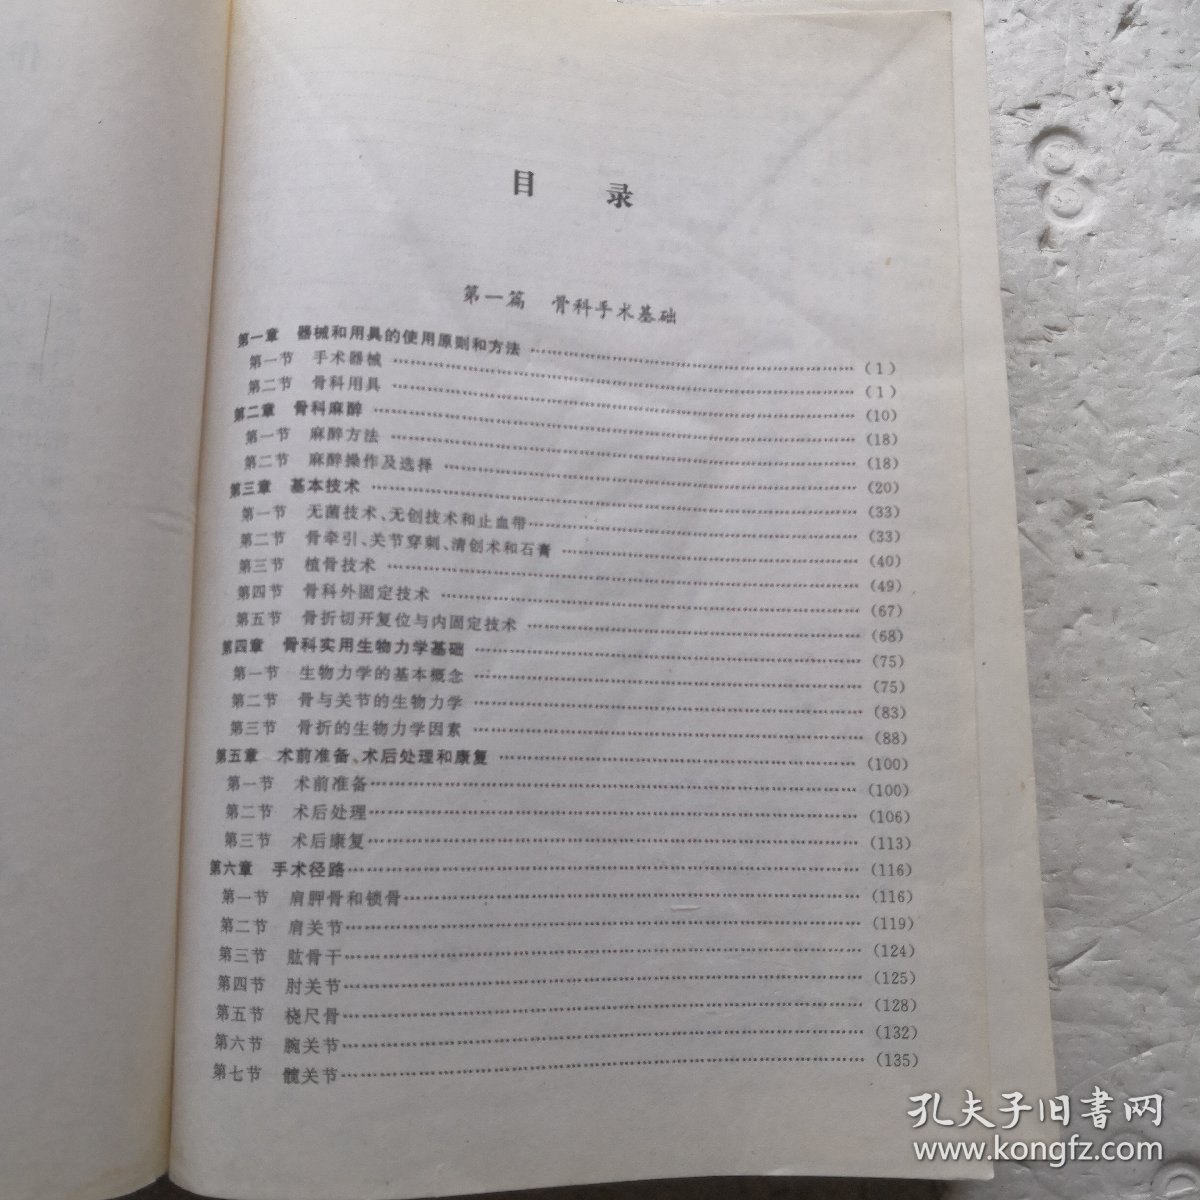 目 录
第一篇 骨科手术基础
第一章 器械和用具的使用原则和方法 …… (1)
第一节 手术器械 …… (1)
第二节 骨科用具 …… (10)
第二章 骨科麻醉 …… (18)
第一节 麻醉方法 …… (18)
第二节 麻醉操作及选择 …… (20)
第三章 基本技术 …… (33)
第一节 无菌技术、无创技术和止血带 …… (33)
第二节 骨牵引、关节穿刺、清创术和石膏 …… (40)
第三节 植骨技术 …… (49)
第四节 骨科外固定技术 …… (67)
第五节 骨折切开复位与内固定技术 …… (68)
第四章 骨科实用生物力学基础 …… (75)
第一节 生物力学的基本概念 …… (75)
第二节 骨与关节的生物力学 …… (83)
第三节 骨折的生物力学因素 …… (88)
第五章 术前准备、术后处理和康复 …… (100)
第一节 术前准备 …… (100)
第二节 术后处理 …… (106)
第三节 术后康复 …… (113)
第六章 手术径路 …… (116)
第一节 肩胛骨和锁骨 …… (116)
第二节 肩关节 …… (119)
第三节 肱骨干 …… (124)
第四节 肘关节 …… (125)
第五节 桡尺骨 …… (128)
第六节 腕关节 …… (132)
第七节 髋关节 …… (135)
孔夫子旧书网
www.kongfz.com